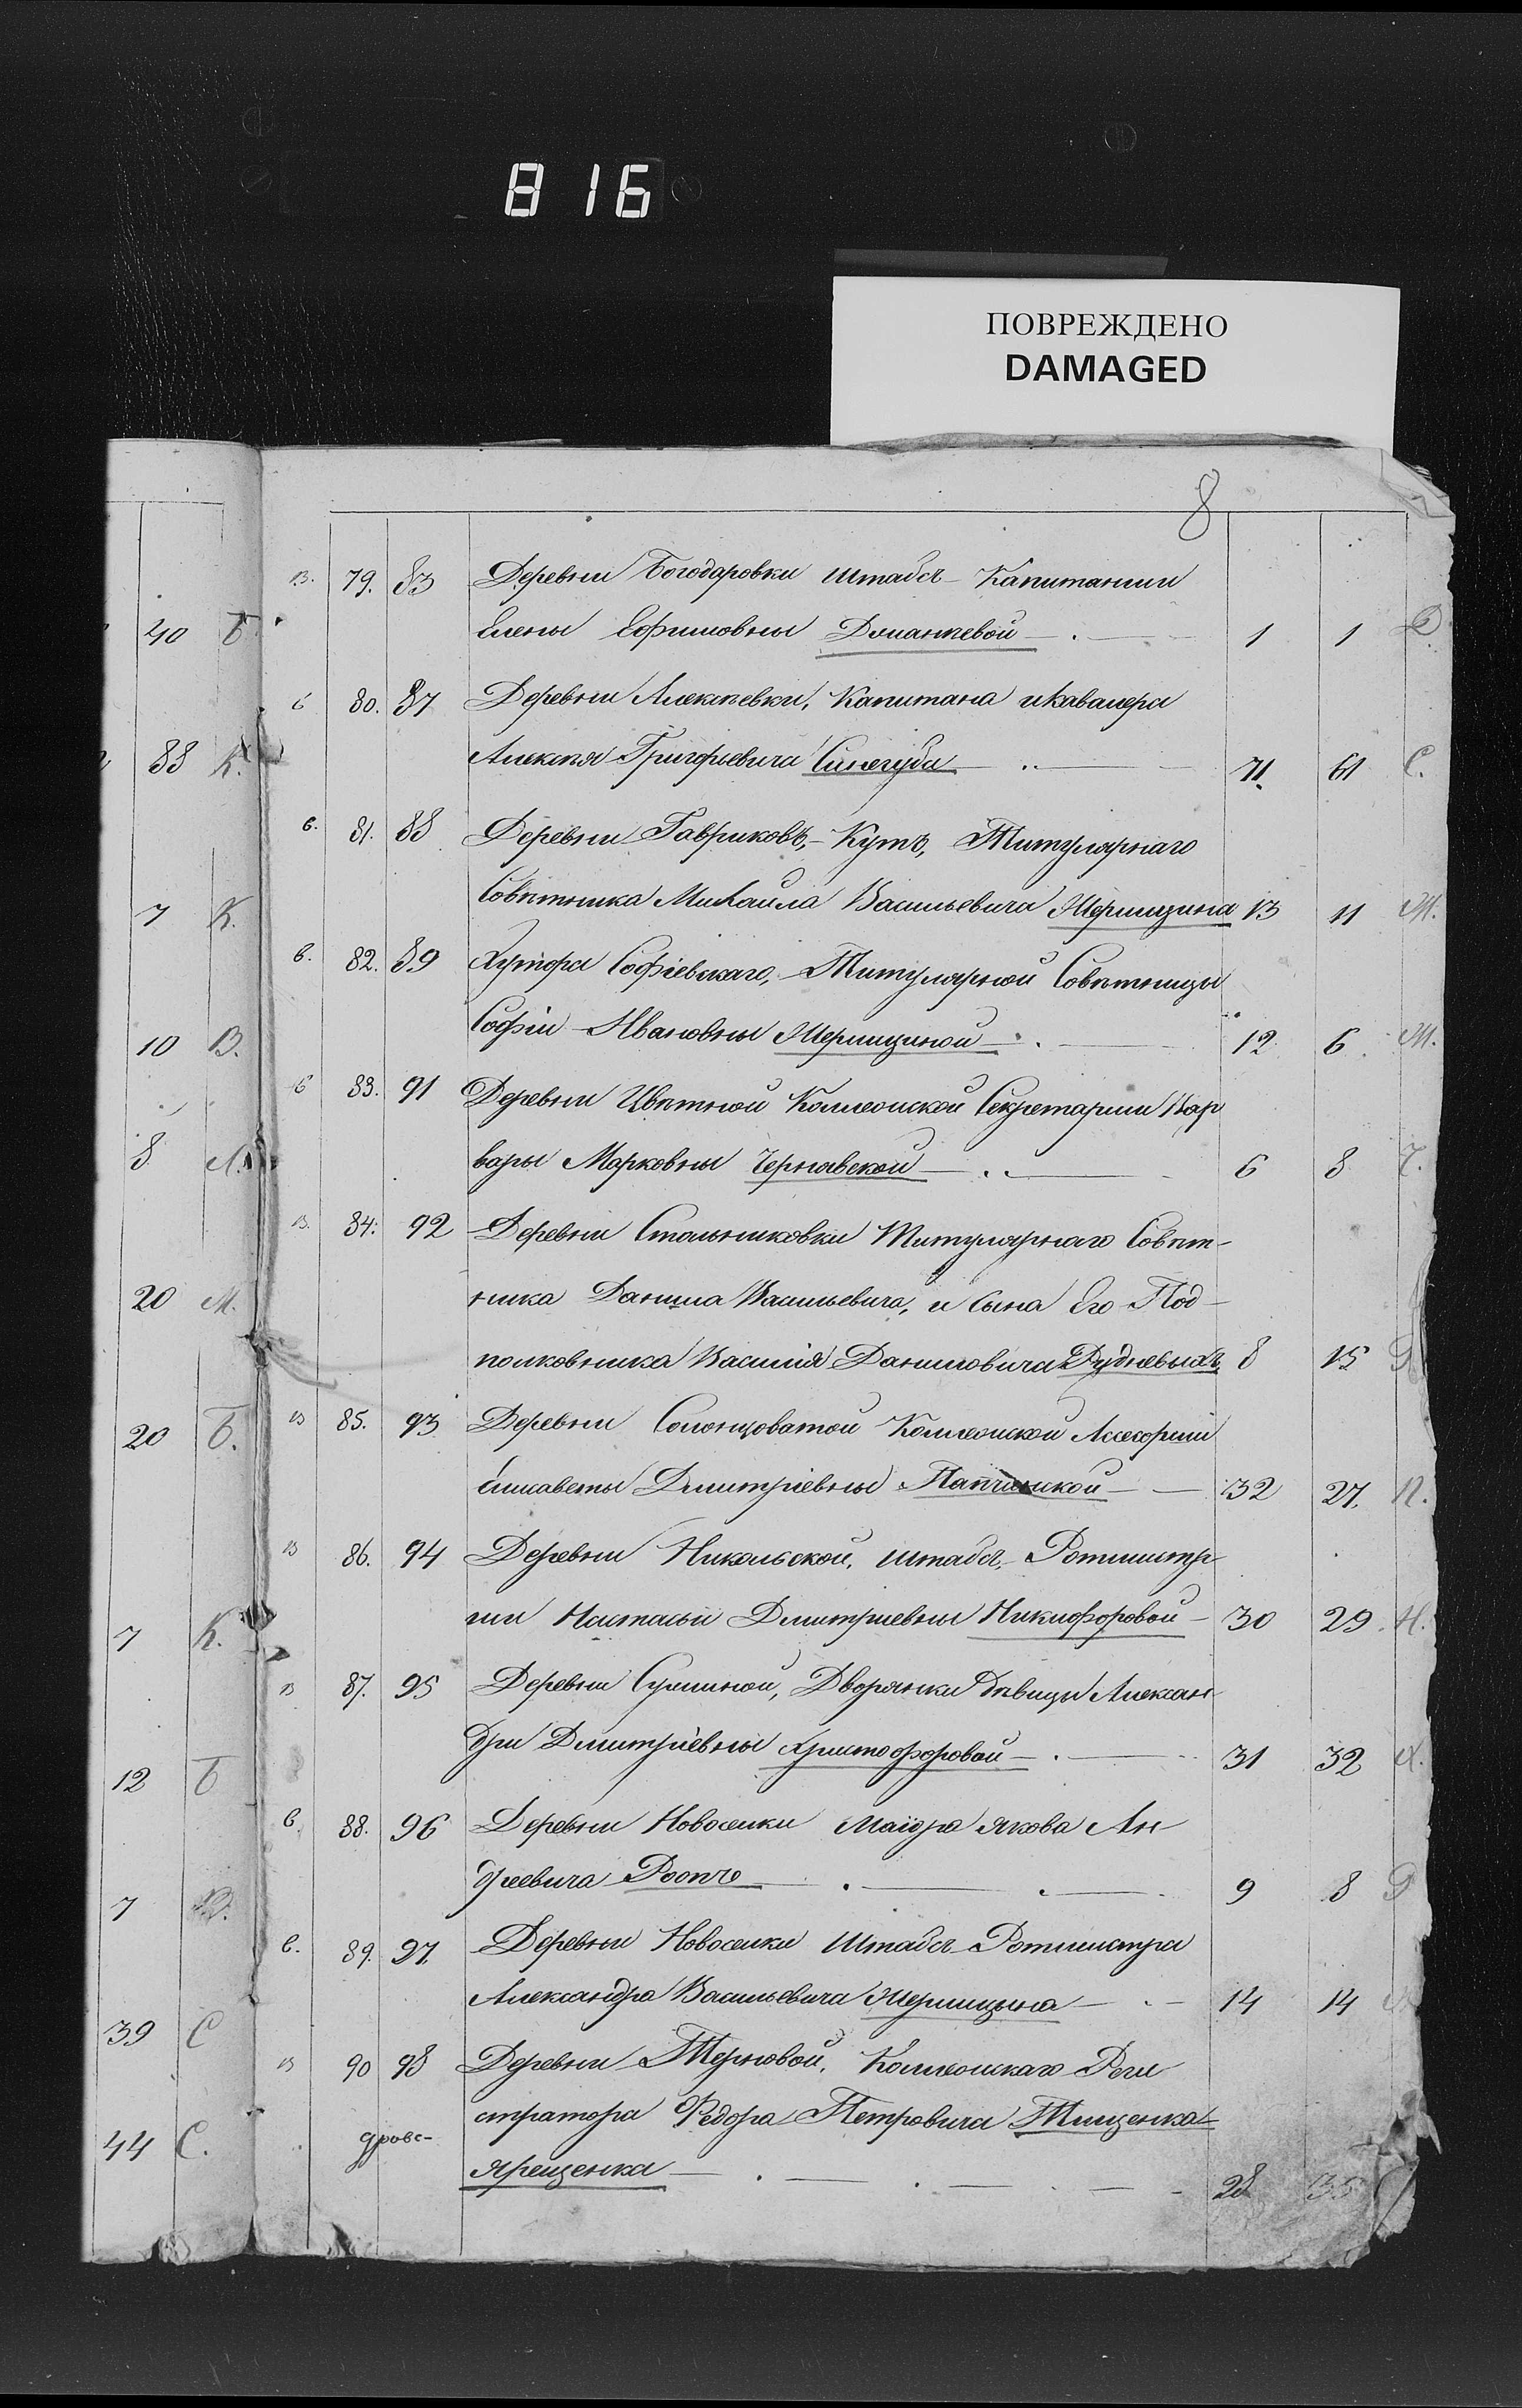 816
ПОВРЕЖДЕНО
DAMAGED
8
40 Б
88 К.
7 К.
10 В.
8 Л.
20 М.
20 Б.
7 К.
12 Б
7
39 С
44 С.
В. 79. 83 Деревни Богодаровки Штабсъ-Капитанши
Елены Ефимовны 1 1 Д.
в 80. 87 Деревни Алексѣевки, Капитана и Кавалера
Алексѣя Григорьевича Синегуба 71. 61 С.
в. 81. 88 Деревни Гавриковъ-Кутъ, Титулярнаго
Совѣтника Михаила Васильевича 13 11 М.
в. 82. 89 Хутора Софіевскаго, Титулярной Совѣтницы
Софіи Ивановны 12 6 М.
в 83. 91 Деревни Цвѣтной Коллежской Секретарши Вар
вары Марковны Чернявской 6 8 Ч.
В. 84. 92 Деревни Стольниковки Титулярнаго Совѣт-
ника Данила Васильевича, и Сына Его Под-
полковника Василія Даниловича Рудневыхъ 8 15 Р
В 85. 93 Деревни Солонцоватой Коллежской Ассесорши
Елисаветы Дмитріевны Папчинской 32 27. П.
В 86. 94 Деревни Никольской, Штабсъ-Ротмистр
ши Настасьи Дмитриевны Никифоровой 30 29. Н.
В 87. 95 Деревни Сулиной, Дворянки Дѣвицы Алексан
дры Дмитріевны Христофоровой 31 32 Х.
в 88. 96 Деревни Новоселки Маіора Якова Ан
дреевича 9 8 Р
в. 89. 97. Деревни Новоселки Штабсъ-Ротмистра
Александра Васильевича 14 14
В 90 98 Деревни Терновой, Коллежскаго Реги
стратора Федора Петровича Тищенка-
Ярещенка 28 35